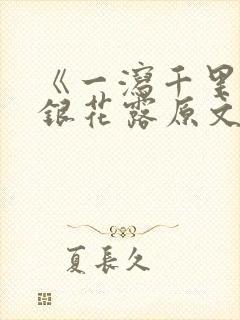 《一瀉千里
銀花露原文
夏長久